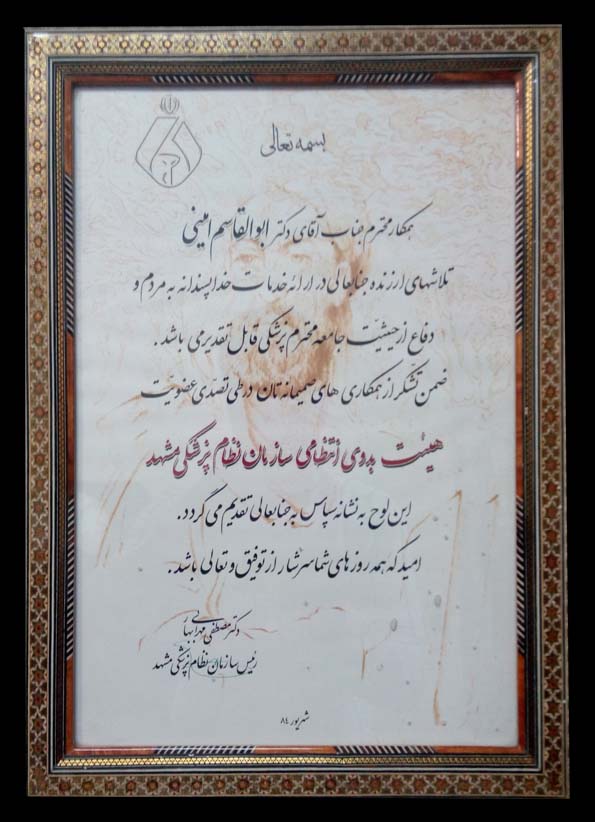 بسمه تعالی
همکار محترم جناب آقای دکتر ابوالقاسم امینی
تلاشهای ارزنده جنابعالی در ارائه خدمات خداپسندانه به مردم و
دفاع از حیثیت جامعه محترم پزشکی قابل تقدیر می باشد .
ضمن تشکر از همکاری های صمیمانه تان در طی تصدی عضویت
هیئت بدوی انتظامی سازمان نظام پزشکی مشهد
این لوح به نشانه سپاس به جنابعالی تقدیم می گردد .
امید که همه روزهای شما سرشار از توفیق و تعالی باشد .
دکتر مصطفی مهرابی بهار
رئیس سازمان نظام پزشکی مشهد
شهریور ۸۴